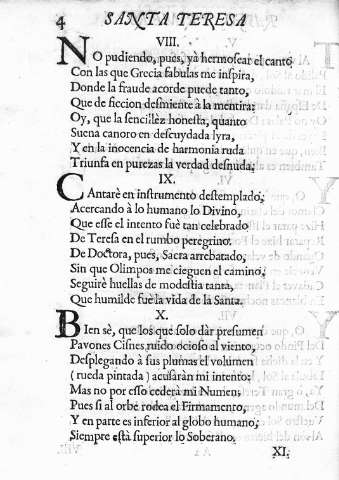 4 SANTA TERESA
VIII.
NO pudiendo, pues, yà hermosear el canto
Con las que Grecia fabulas me inspira,
Donde la fraude acorde puede tanto,
Que de ficcion desmiente à la mentira:
Oy, que la sencillèz honesta, quanto
Suena canoro en descuydada lyra,
Y en la inocencia de harmonia ruda
Triunfa en purezas la verdad desnuda;
IX.
CAntarè en instrumento destemplado,
Acercando à lo humano lo Divino,
Que esse el intento fuè tan celebrado
De Teresa en el rumbo peregrino.
De Doctora, pues, Sacra arrebatado,
Sin que Olimpos me cieguen el camino,
Seguirè huellas de modestia tanta,
Que humilde fuè la vida de la Santa.
X.
BIen sè, que los que solo dàr presumen
Pavones Cisnes, ruido ocioso al viento,
Desplegando à sus plumas el volumen
(rueda pintada) acusaràn mi intento:
Mas no por esso cederà mi Numen;
Pues si al orbe rodea el Firmamento,
Y en parte es inferior al globo humano;
Siempre està superior lo Soberano.
XI.